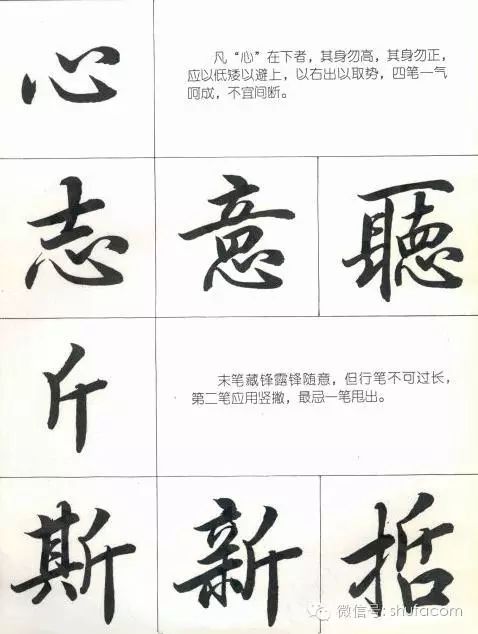 心
凡“心”在下者，其身勿高，其身勿正，
应以低矮以避上，以右出以取势，四笔一气
呵成，不宜间断。
志 意 聽
斤
末笔藏锋露锋随意，但行笔不可过长，
第二笔应用竖撇，最忌一笔甩出。
斯 新 哲
微信号: shufacom